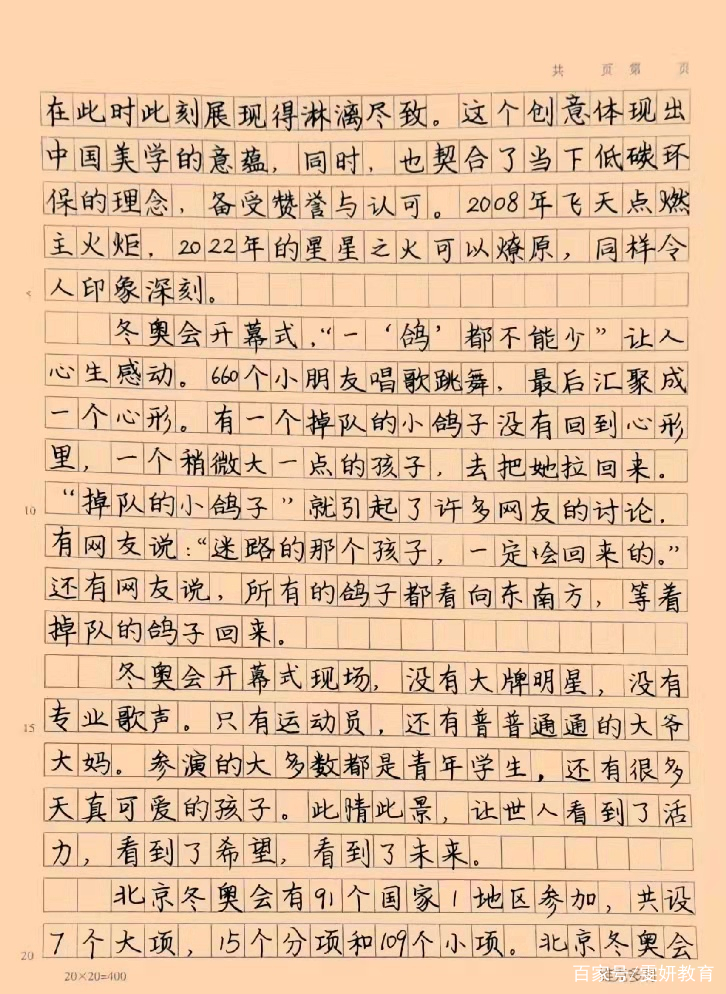 共 页 第 页
在此时此刻展现得淋漓尽致。这个创意体现出
中国美学的意蕴，同时，也契合了当下低碳环
保的理念，备受赞誉与认可。2008年飞天点燃
主火炬，2022年的星星之火可以燎原，同样令
人印象深刻。
冬奥会开幕式，“一‘鸽’都不能少”让人
心生感动。660个小朋友唱歌跳舞，最后汇聚成
一个心形。有一个掉队的小鸽子没有回到心形
里，一个稍微大一点的孩子，去把她拉回来。
10 “掉队的小鸽子”就引起了许多网友的讨论，
有网友说：“迷路的那个孩子，一定会回来的。”
还有网友说，所有的鸽子都看向东南方，等着
掉队的鸽子回来。
冬奥会开幕式现场，没有大牌明星，没有
15 专业歌声。只有运动员，还有普普通通的大爷
大妈。参演的大多数都是青年学生，还有很多
天真可爱的孩子。此情此景，让世人看到了活
力，看到了希望，看到了未来。
北京冬奥会有91个国家/地区参加，共设
20 7个大项，15个分项和109个小项。北京冬奥会
20×20=400
百家号/雯妍教育